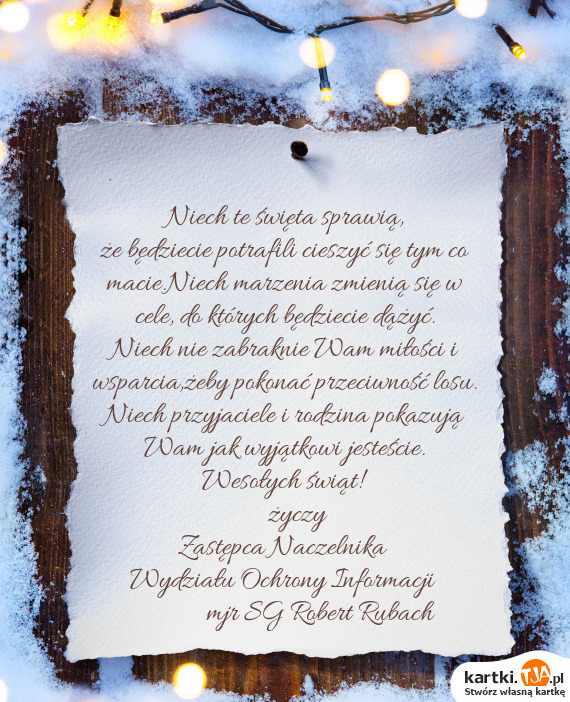 Niech te święta sprawią,
że będziecie potrafili cieszyć się tym co
macie.Niech marzenia zmienią się w
cele, do których będziecie dążyć.
Niech nie zabraknie Wam miłości i
wsparcia,żeby pokonać przeciwność losu.
Niech przyjaciele i rodzina pokazują
Wam jak wyjątkowi jesteście.
Wesołych świąt!
życzy
Zastępca Naczelnika
Wydziału Ochrony Informacji
mjr SG Robert Rubach
kartki.TJA.pl
Stwórz własną kartkę